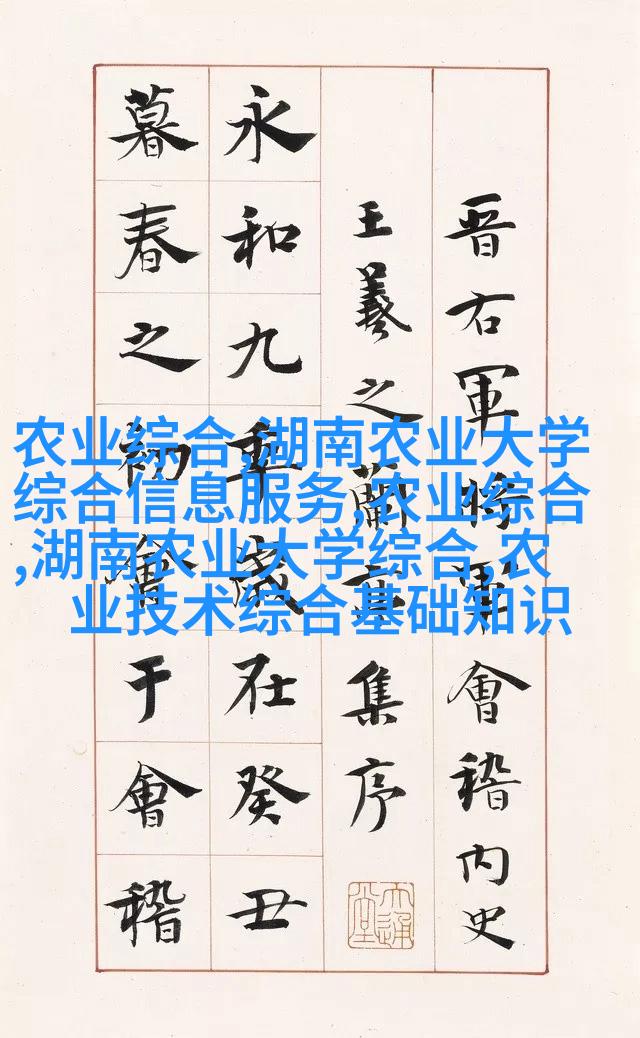 晋右軍將軍會稽内史
王羲之蘭亭集序
永和九年歲在癸丑
暮春之初會于會稽
农业综合,湖南农业大学
综合信息服务,农业综合
,湖南农业大学综合,农
业技术综合基础知识